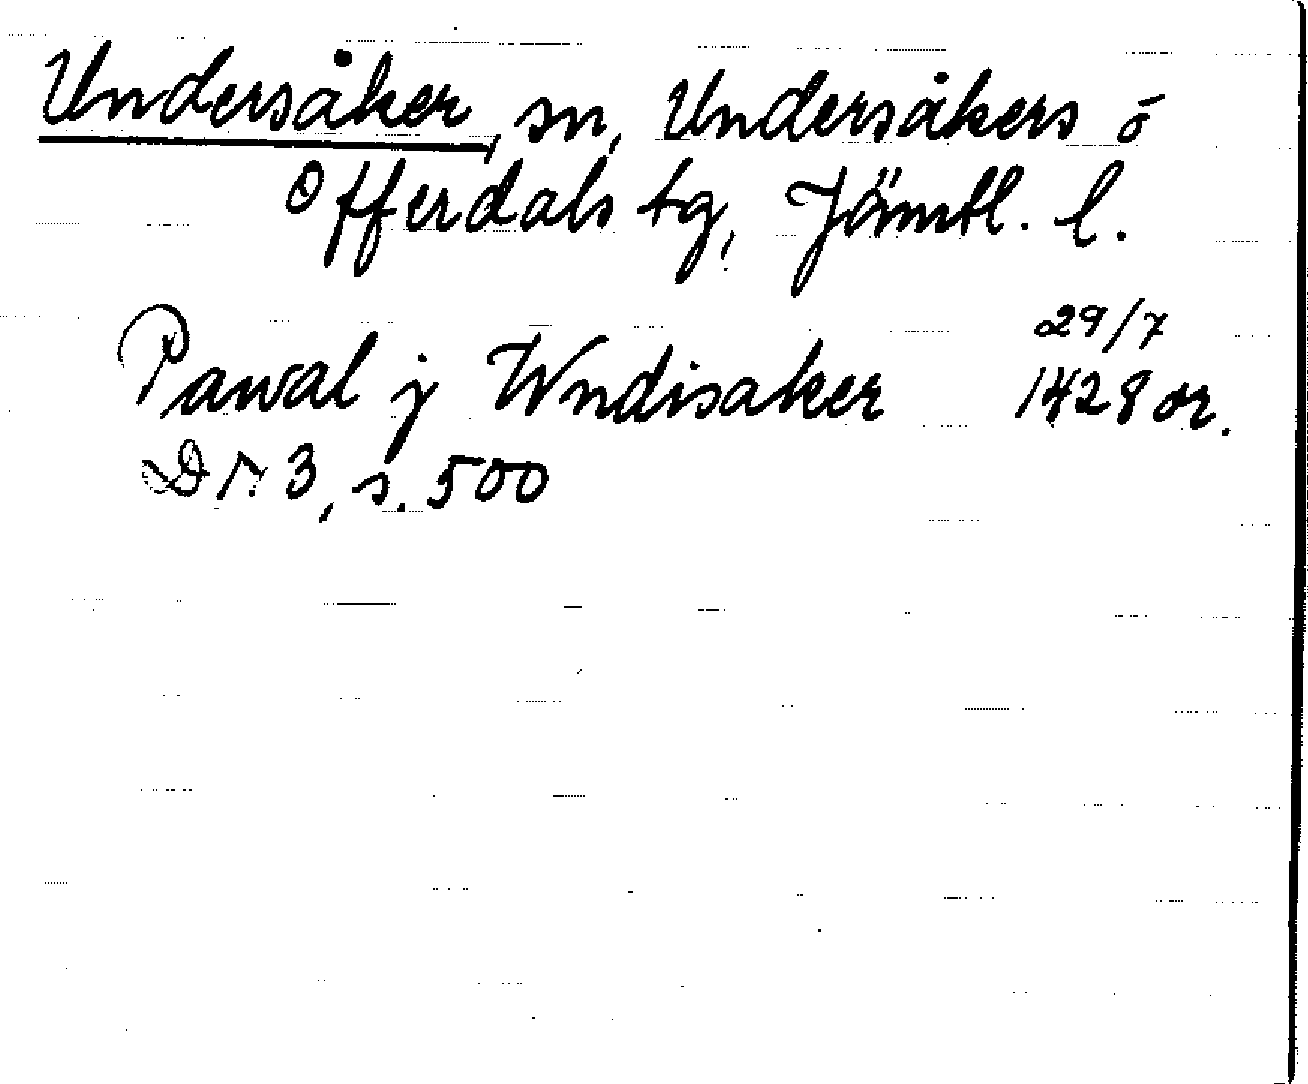 Undersåker, sn, Undersåkers o
Offerdals tg, Jämtl. l.
Pawal j Wndisaker 29/7 1428 or.
DN 3, s. 500